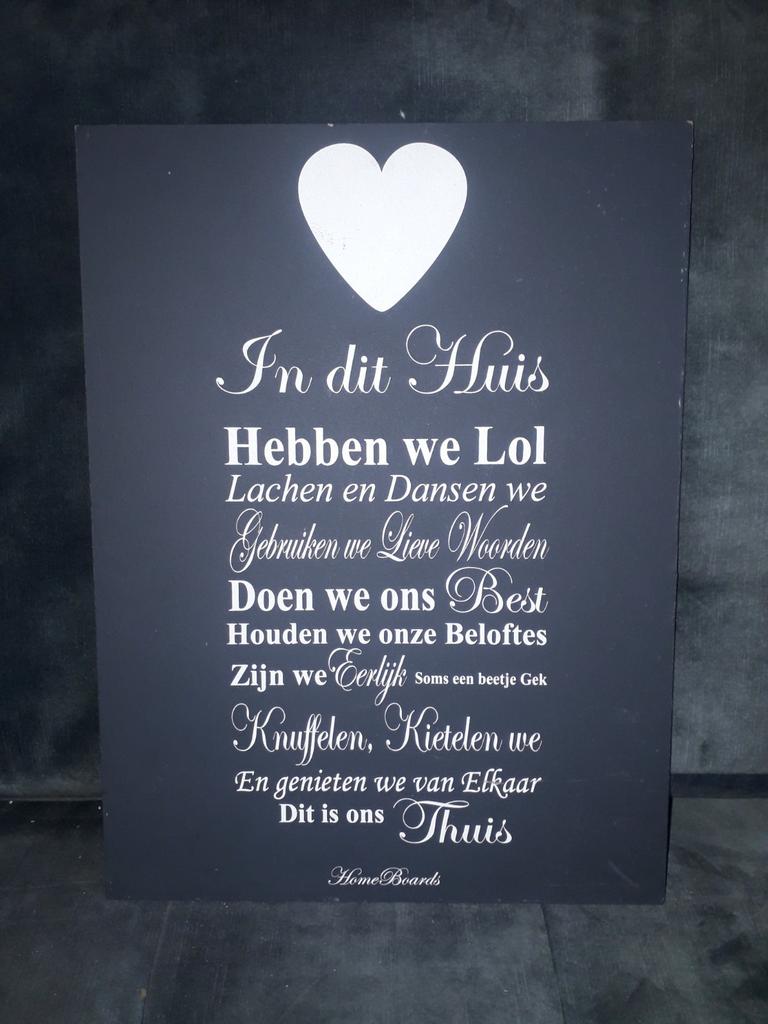 In dit Huis
Hebben we Lol
Lachen en Dansen we
Gebruiken we Lieve Woorden
Doen we ons Best
Houden we onze Beloftes
Zijn we Eerlijk Soms een beetje Gek
Knuffelen, Kietelen we
En genieten we van Elkaar
Dit is ons Thuis
HomeBoards